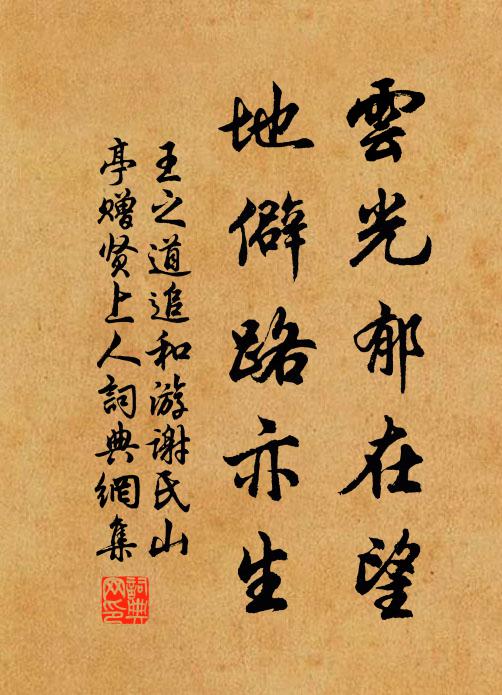 雲光郁在望
地僻路亦生
王之道追和游谢氏山
亭赠贤上人詞典網集
詞典
网印